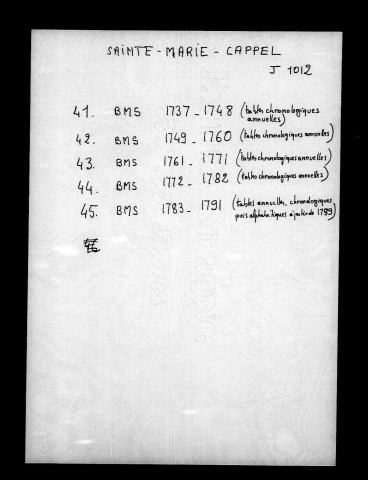 SAINTE-MARIE-CAPPEL
J 1012
41. BMS 1737-1748 (tables chronologiques annuelles)
42. BMS 1749-1760 (tables chronologiques annuelles)
43. BMS 1761-1771 (tables chronologiques annuelles)
44. BMS 1772-1782 (tables chronologiques annuelles)
45. BMS 1783-1791 (tables annuelles, chronologiques
puis alphabétiques à partir de 1789)